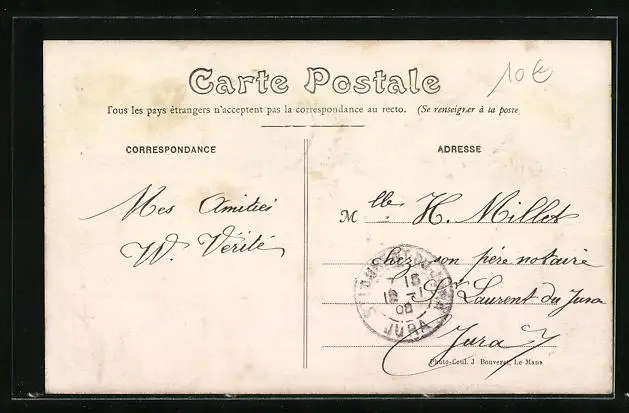 10€
Carte Postale
Tous les pays étrangers n'acceptent pas la correspondance au recto. (Se renseigner à la poste
CORRESPONDANCE
ADRESSE
Mes Amitiés
W. Vérité
Mlle H. Millet
chez son père notaire
St Laurent du Jura
Jura
JURA
Photo-Coul. J Bouveret, Le Mans